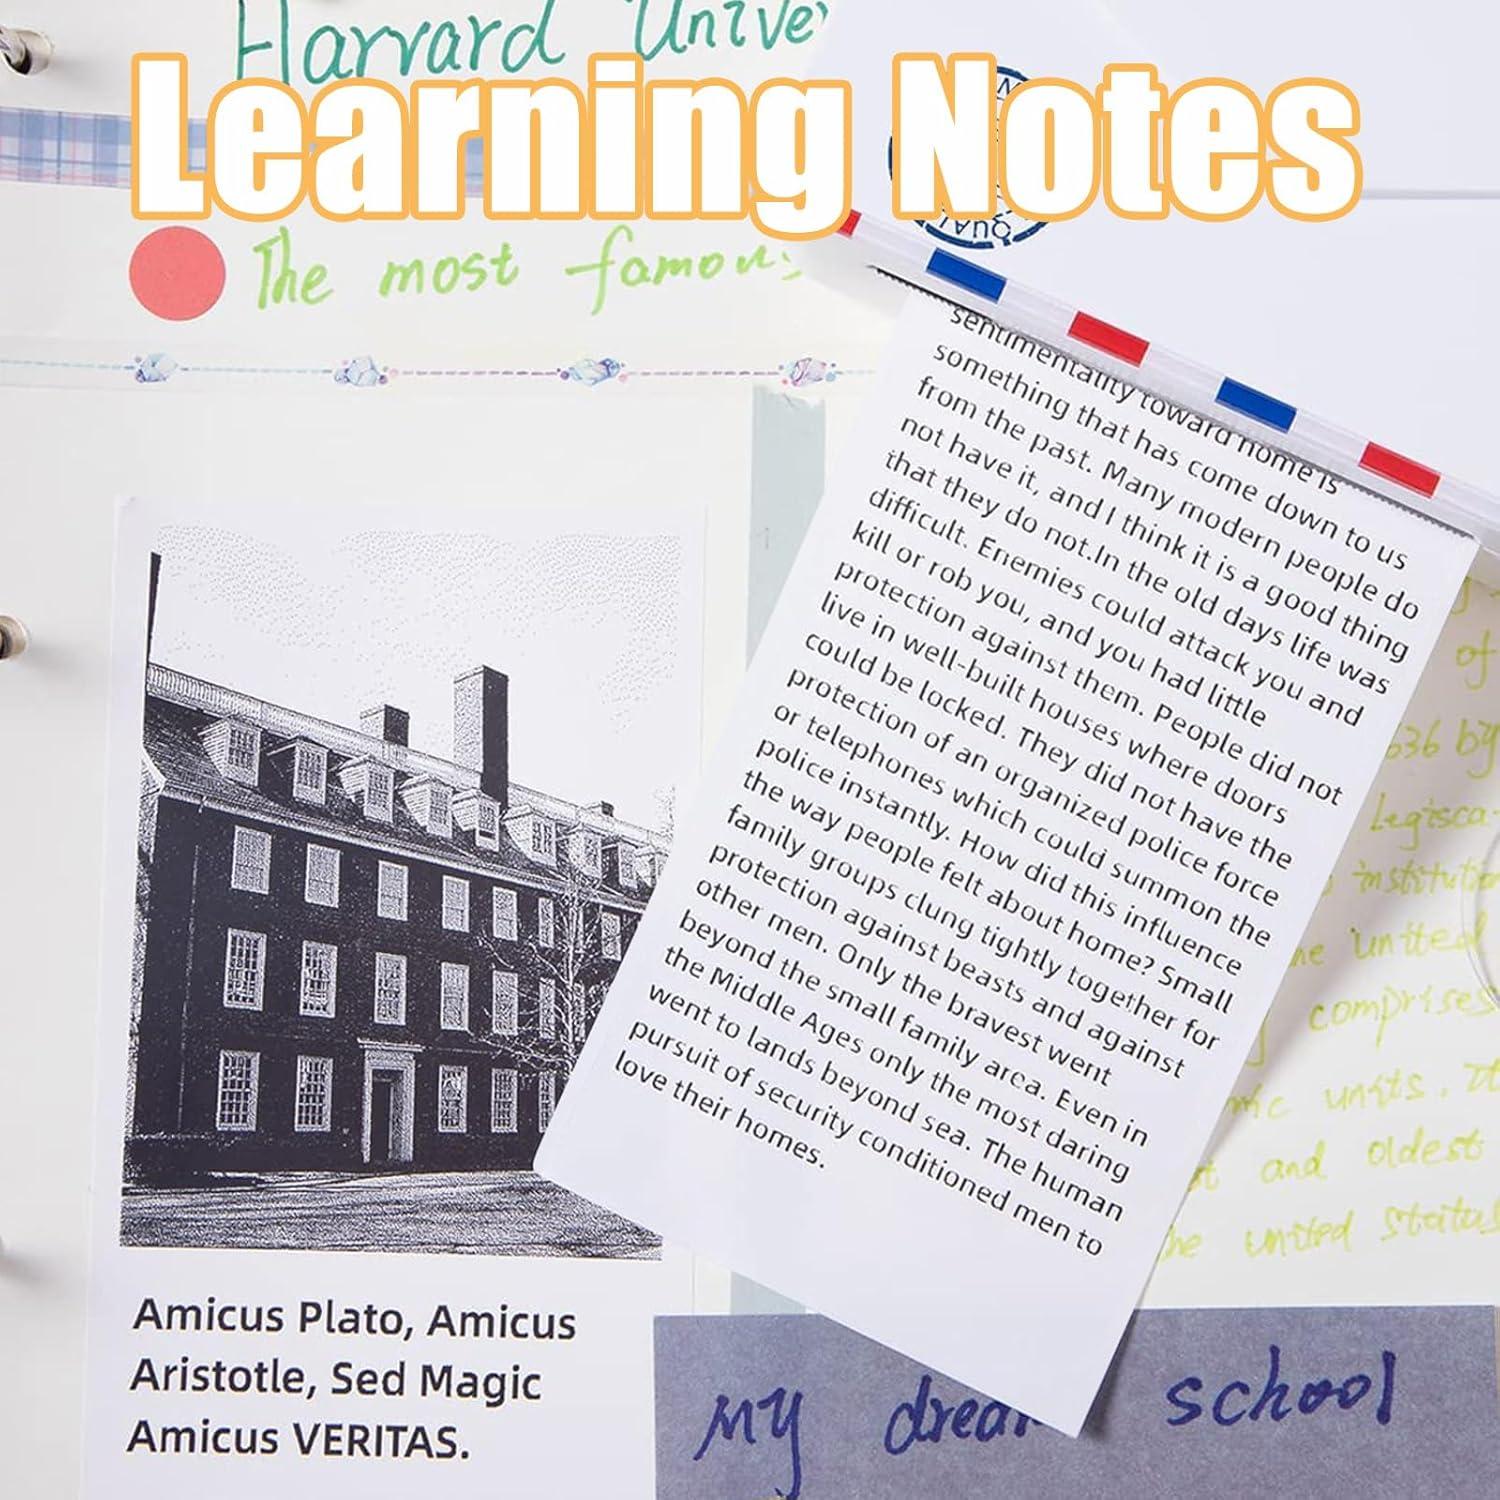 Harvard Unive
Learning Notes
QUAL
The most famous
sentimentality toward home is
something that has come down to us
from the past. Many modern people do
not have it, and I think it is a good thing
that they do not.In the old days life was
difficult. Enemies could attack you and
kill or rob you, and you had little
protection against them. People did not
live in well-built houses where doors
could be locked. They did not have the
protection of an organized police force
or telephones which could summon the
police instantly. How did this influence
the way people felt about home? Small
family groups clung tightly together for
protection against beasts and against
other men. Only the bravest went
beyond the small family area. Even in
the Middle Ages only the most daring
went to lands beyond sea. The human
pursuit of security conditioned men to
love their homes.
of
636 by
Legisca-
institution
united
comprises
units. It
and oldest
he united status
Amicus Plato, Amicus
Aristotle, Sed Magic
Amicus VERITAS.
My dream school